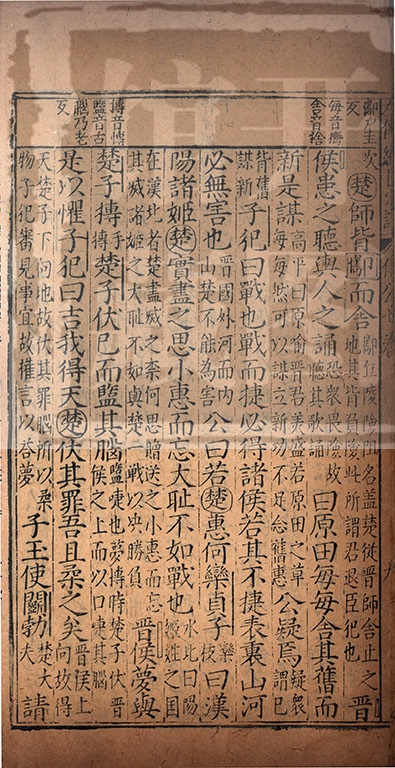 舍音捨
搏音博
盬音古
腦乃老
反
次楚師背酅而舍酅丘陵險阻名盖楚從晉師舍止之地其皆負陵此所謂君退臣犯也晉
侯患之聽輿人之誦恐衆畏險故聽其歌誦曰原田每每舍其舊而
新是謀高平曰原喻晉君美盛若原田之草每每然可以謀立新功不足念舊惠公疑焉疑衆謂已
背舊謀新子犯曰戰也戰而捷必得諸侯若其不捷表裏山河
必無害也晉國外河而内山楚不能為害公曰若楚惠何欒貞子欒枝曰漢
陽諸姬楚實盡之思小惠而忘大恥不如戰也水北曰陽姬姓之国
在漢北者楚盡滅之柰何思贈送之小惠而忘其滅諸姬之大恥不如與楚一戰以央勝負晉侯夢與
楚子搏手搏楚子伏已而盬其腦盬啑也夢搏時楚子伏晉侯之上而以口啑其腦
是以懼子犯曰吉我得天楚伏其罪吾且柔之矣晉侯上向故得
天楚子下向地故伏其罪腦所以柔物子犯審見事宜故權言以荅夢子玉使鬭勃楚大夫請